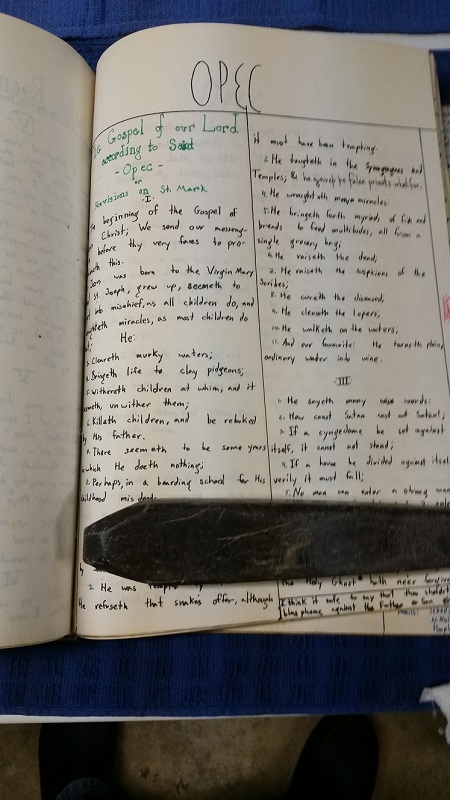 OPEC
Gospel of our Lord
according to Saint
- Opec -
or
Revisions on St. Mark
-I-
beginning of the Gospel of
Christ; We send our messeng-
before thy very faces to pro-
this.
was born to the Virgin Mary
St. Joseph, grew up, seemeth to
into mischief, as all children do, and
miracles, as most children do
He:
Cleareth murky waters;
Bringeth life to clay pidgeons;
Withereth children at whim, and it
unwither them;
Killath children, and be rebuked
by His father.
There seemeth to be some years
which He doeth nothing;
Perhaps, in a boarding school for His
childhood
by
2. He was
He refuseth that snakes offer, although
it must have been tempting.
3. He taugheth in the Synagogues and
Temples;
4. He wraughteth more miracles:
5. He bringeth forth myriads of fish and
breads to feed multitudes, all from a
single grocery bag;
6. He raiseth the dead;
7. He raiseth the suspicions of the
Scribes;
8. He cureth the diseased;
9. He clenseth the lepers;
10. He walketh on the waters;
11. And our favourite: He turneth plain,
ordinary water into wine.
III
1. He sayeth many wise words:
2. How canst Satan cast out Satan?,
3. If a cyngedome be set against
itself, it canst not stand;
4. If a house be divided against itself
verily it must fall;
5. No man can enter a strong man
the Holy Ghost hath never
I think it safe to say that thou shouldst
blaspheme against the Father or Son